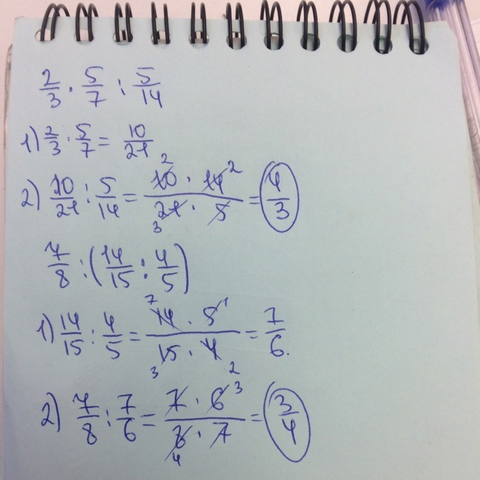 2/3 · 5/7 : 5/14
1) 2/3 · 5/7 = 10/21
2) 10/21 : 5/14 = 10 2 · 14 2 / 21 3 · 5 = 4/3
7/8 : (14/15 : 4/5)
1) 14/15 : 4/5 = 14 7 · 5 1 / 15 3 · 4 2 = 7/6.
2) 7/8 : 7/6 = 7 · 6 3 / 8 4 · 7 = 3/4